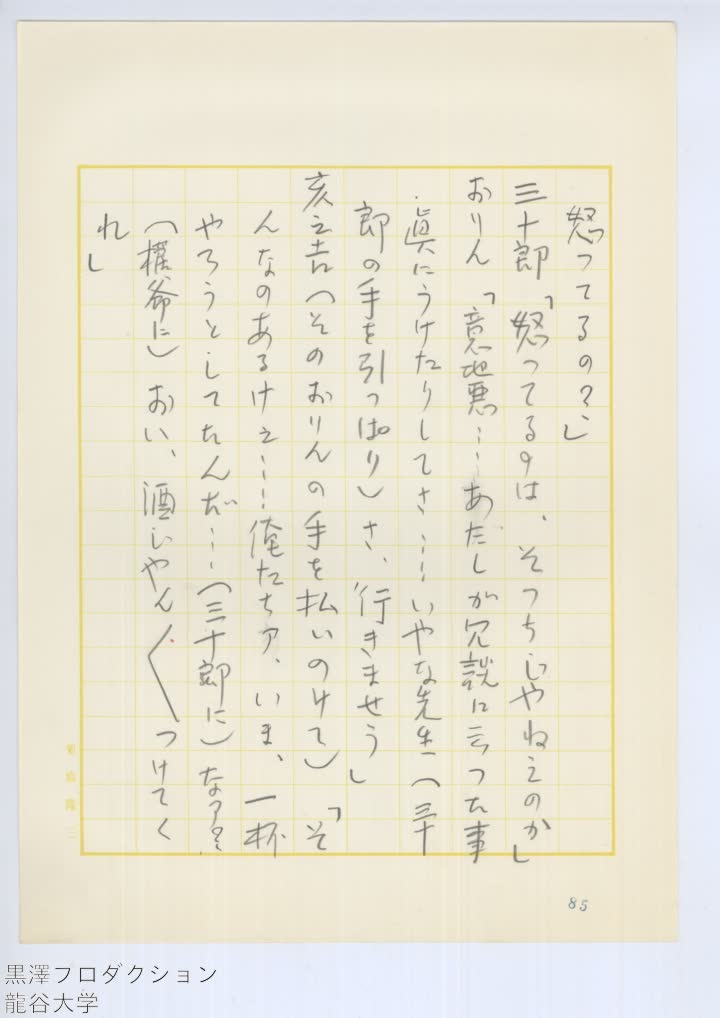 怒ってるの?」
三十郎「怒ってるのは、そっちじゃねえのか」
おりん「意地悪……あたしが冗談に云った事
眞にうけたりしてさ……いやな先生（三十
郎の手を引っぱり）さ、行きませう」
亥之吉（そのおりんの手を払いのけて）「そ
んなのあるけェ……俺たちァ、いま、一杯
やろうとしてたんだ……（三十郎に）なァ……
（権爺に）おい、酒じゃん〱つけてく
れ」
85
黒澤プロダクション
龍谷大学